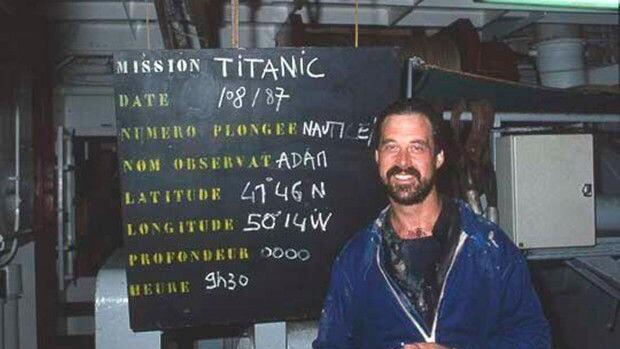 MISSION TITANIC
DATE /08/87
NUMERO PLONGEE NAUTILE/
NOM OBSERVAT ADAM
LATITUDE 41°46 N
LONGITUDE 50°14 W
PROFONDEUR 0000
HEURE 9h30